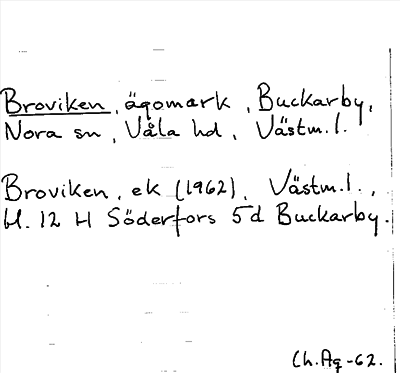 Broviken, ägomark, Buckarby,
Nora sn, Våla hd, Västm.l.
Broviken, ek (1962), Västm.l.,
bl. 12 H Söderfors 5d Buckarby.
Ch.Ag -62.